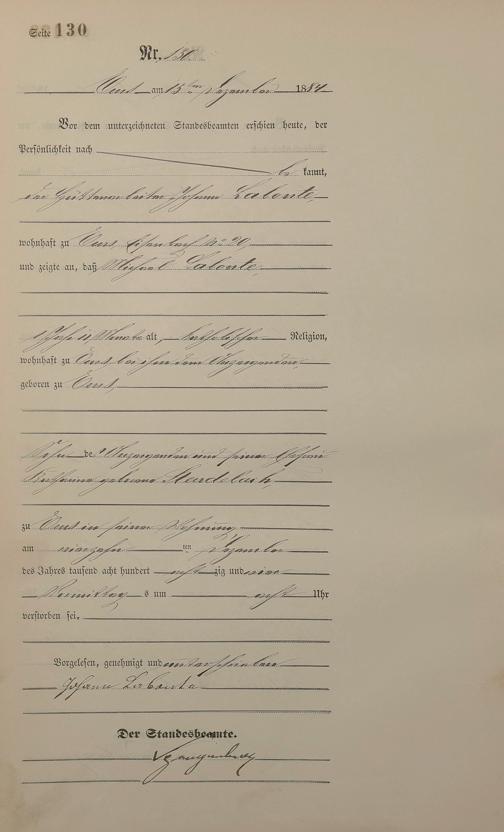 Seite 130
Nr. 130
am 15ten Dezember 1884
Vor dem unterzeichneten Standesbeamten erschien heute, der
Persönlichkeit nach
be kannt,
der Hüttenarbeiter Johann Lalonte
wohnhaft zu
und zeigte an, daß Michael Lalonte
1 Jahr 11 Monate alt, katholischer Religion,
wohnhaft zu bei ihm dem Anzeigenden,
geboren zu
Sohn des Anzeigenden und seiner Ehefrau
Katharina geborene
zu in seiner Wohnung
am vierzehn ten Dezember
des Jahres tausend acht hundert acht zig und vier
Vormittag s um acht Uhr
verstorben sei.
Vorgelesen, genehmigt und unterschrieben
Johann
Der Standesbeamte.